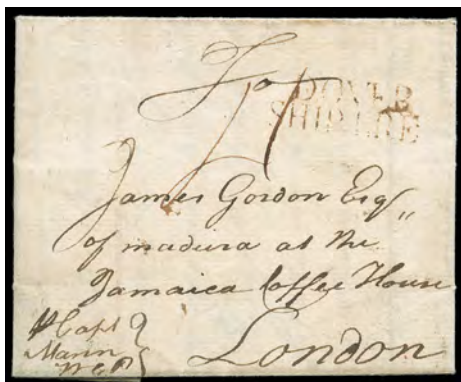 To
DOVER
SHIP LRE
James Gordon Esqr
of madeira at the
Jamaica Coffee House
London
Capt
Mann